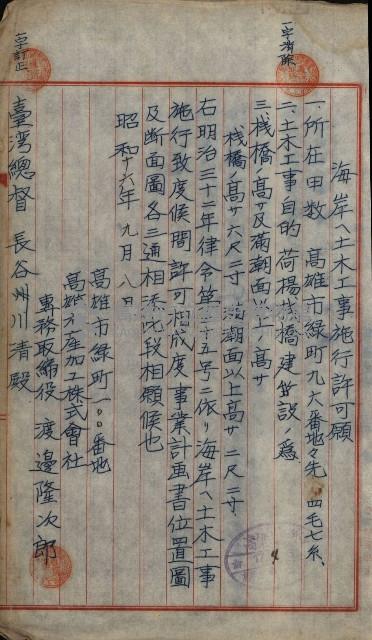 一字消除
一字訂正
海岸ヘ土木工事施行許可願
一、所在甲数 高雄市緑町九六番地々先 四毛七糸、
二、土木工事目的 荷揚桟橋建設ノ為
三、桟橋ノ高サ及満潮面以上ノ高サ
桟橋ノ高サ六尺二寸 満潮面以上高サ二尺二寸
右明治三十二年律令第十五号ニ依リ海岸ヘ土木工事
施行致度候間許可相成度事業計画書位置図
及断面圖各三通相添此段相願候也
昭和十六年九月八日
高雄市緑町一〇〇番地
高雄水産加工株式會社
専務取締役 渡邉隆次郎
臺湾總督 長谷川清殿